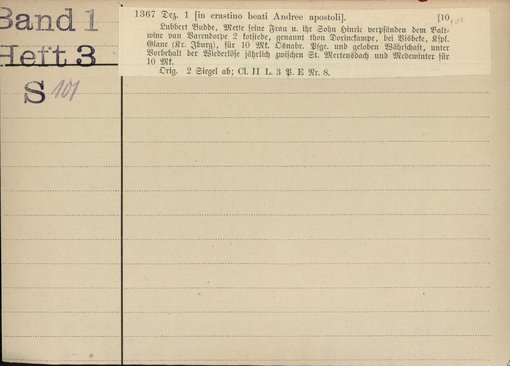 Band 1
Heft 3
S 101
1367 Dez. 1 [in crastino beati Andree apostoli]. [10,
Lubbert Budde, Mette seine Frau u. ihr Sohn Hinric verpfänden dem Balt-
wine van Varendorpe 2 kotstede, genannt thon Dorinckampe, bei Visbeke, Kspl.
Glane (Kr. Iburg), für 10 Mk. Osnabr. Pfge. und geloben Währschaft, unter
Vorbehalt der Wiederlöse jährlich zwischen St. Mertensdach und Medewinter für
10 Mk.
Orig. 2 Siegel ab; Cl. H L. 3 P. E Nr. 8.